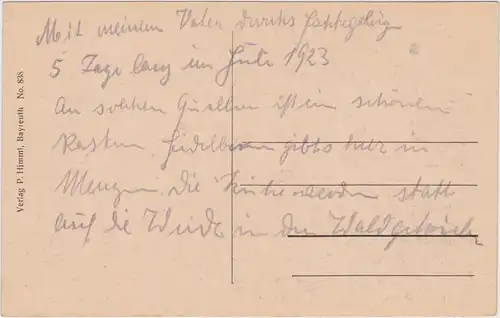 Mit meinem Vater durchs Fichtelgebirg
5 Tage lang im Jule 1923
An solchen Quellen ist ein schönes
Rasten. Heidelbeeren gibts hier in
Mengen. Die Kinder werden statt
auf die Weide in den Wald getrieb
Verlag P. Himml, Bayreuth No. 838